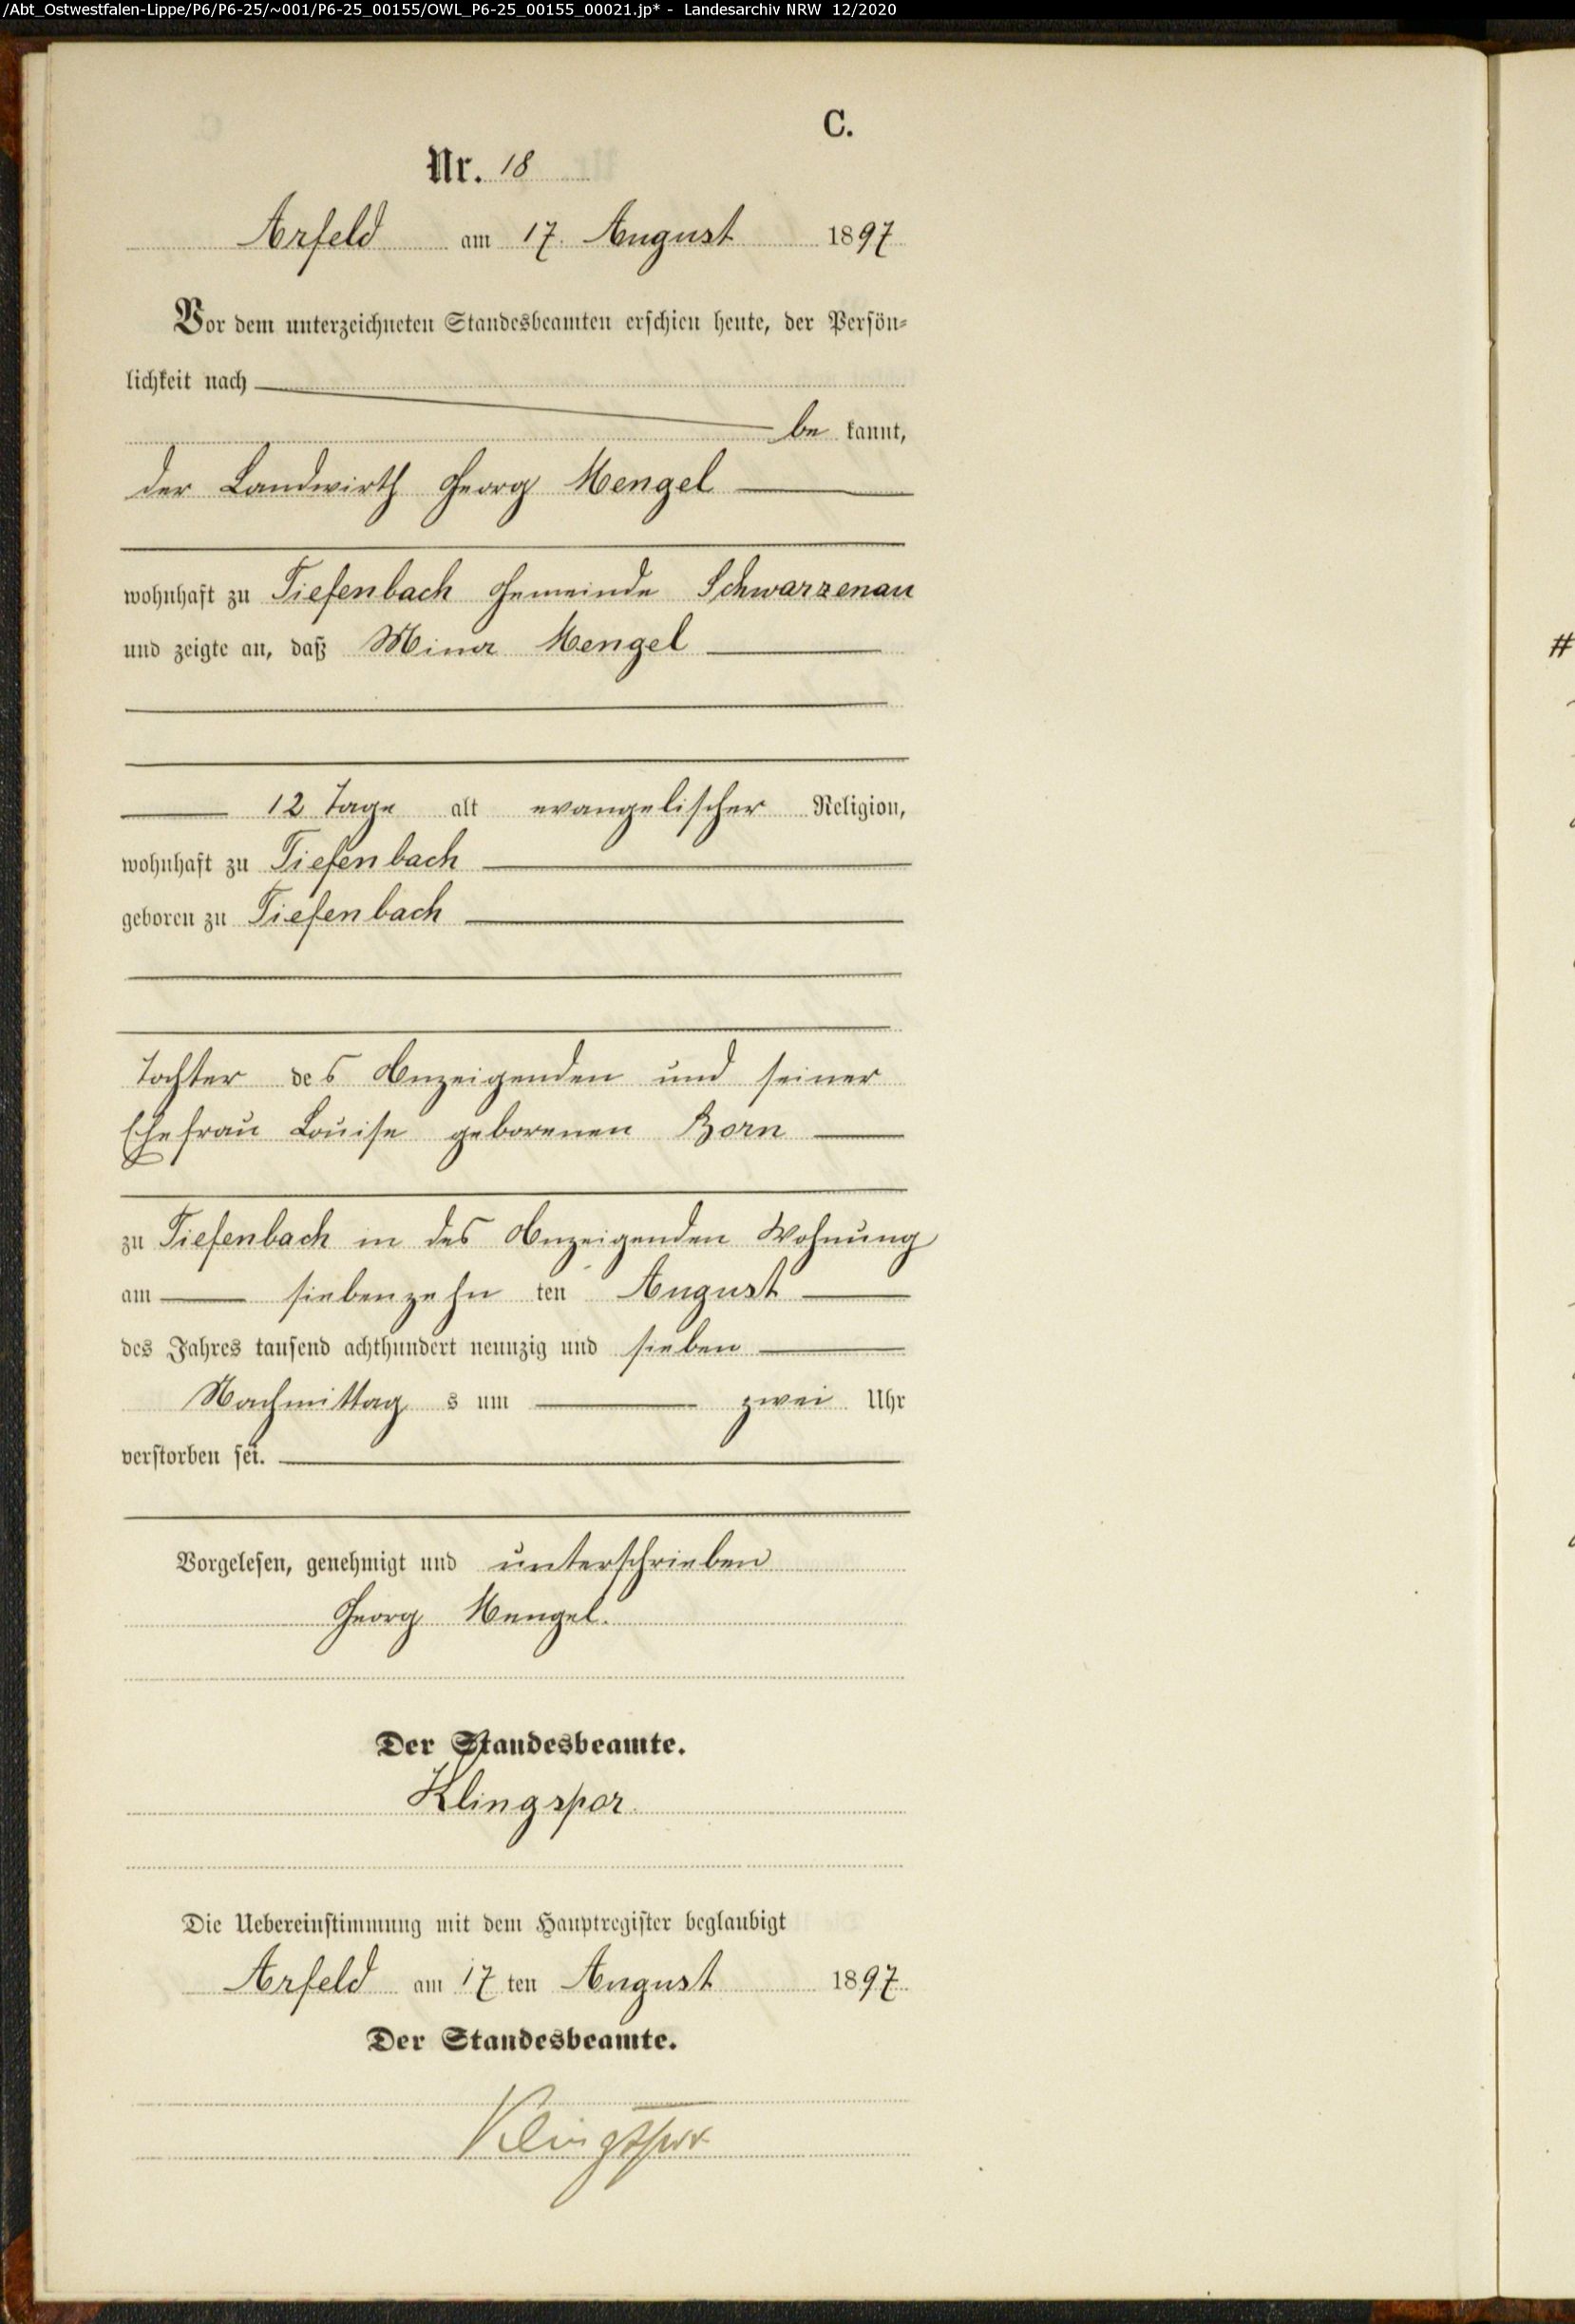 /Abt_Ostwestfalen-Lippe/P6/P6-25/~001/P6-25_00155/OWL_P6-25_00155_00021.jp* - Landesarchiv NRW 12/2020
C.
Nr. 18
Arfeld am 17. August 1897
Vor dem unterzeichneten Standesbeamten erschien heute, der Persön-
lichkeit nach
be kannt,
der Landwirth Georg Mengel
wohnhaft zu Tiefenbach Gemeinde Schwarzenau
und zeigte an, daß Mina Mengel
12 Tage alt evangelischer Religion,
wohnhaft zu Tiefenbach
geboren zu Tiefenbach
Tochter des Anzeigenden und seiner
Ehefrau Louise geborenen Born
zu Tiefenbach in des Anzeigenden Wohnung
am siebenzehn ten August
des Jahres tausend achthundert neunzig und sieben
Nachmittag s um zwei Uhr
verstorben sei.
Vorgelesen, genehmigt und unterschrieben
Georg Mengel.
Der Standesbeamte.
Klingspor.
Die Uebereinstimmung mit dem Hauptregister beglaubigt
Arfeld am 17 ten August 1897.
Der Standesbeamte.
Klingspor
#